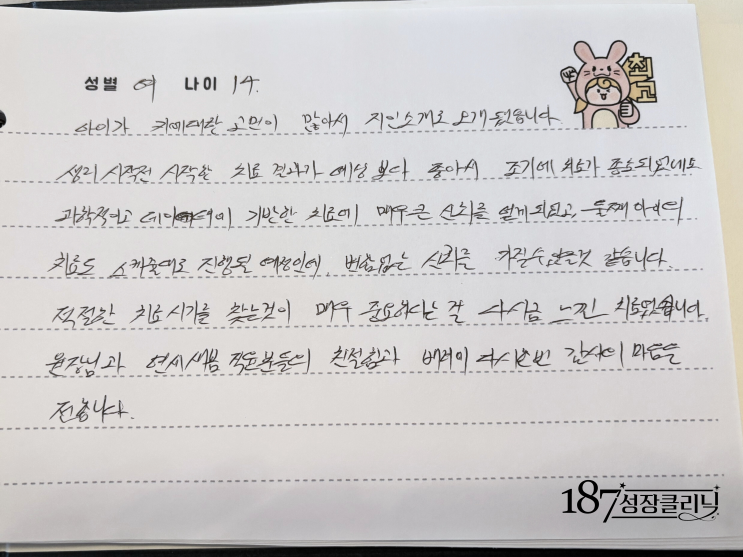 성별 여 나이 14.
최고
아이가 키에대한 고민이 많아서 지인소개로 오게 됐습니다
생리 시작전 시작한 치료 결과가 예상 보다 좋아서 조기에 치료가 종료되었네요
과학적이고 데이터에 기반한 치료에 매우큰 신뢰를 얻게되었고, 둘째 아이의
치료도 스케줄대로 진행될 예정인데, 변함없는 신뢰를 가질수있을것 같습니다.
적절한 치료시기를 찾는것이 매우 중요하다는걸 다시금 느낀 치료였습니다.
원장님과 연세새봄 직원분들의 친절함과 배려에 다시한번 감사의 마음을
전합니다.
187 성장클리닉